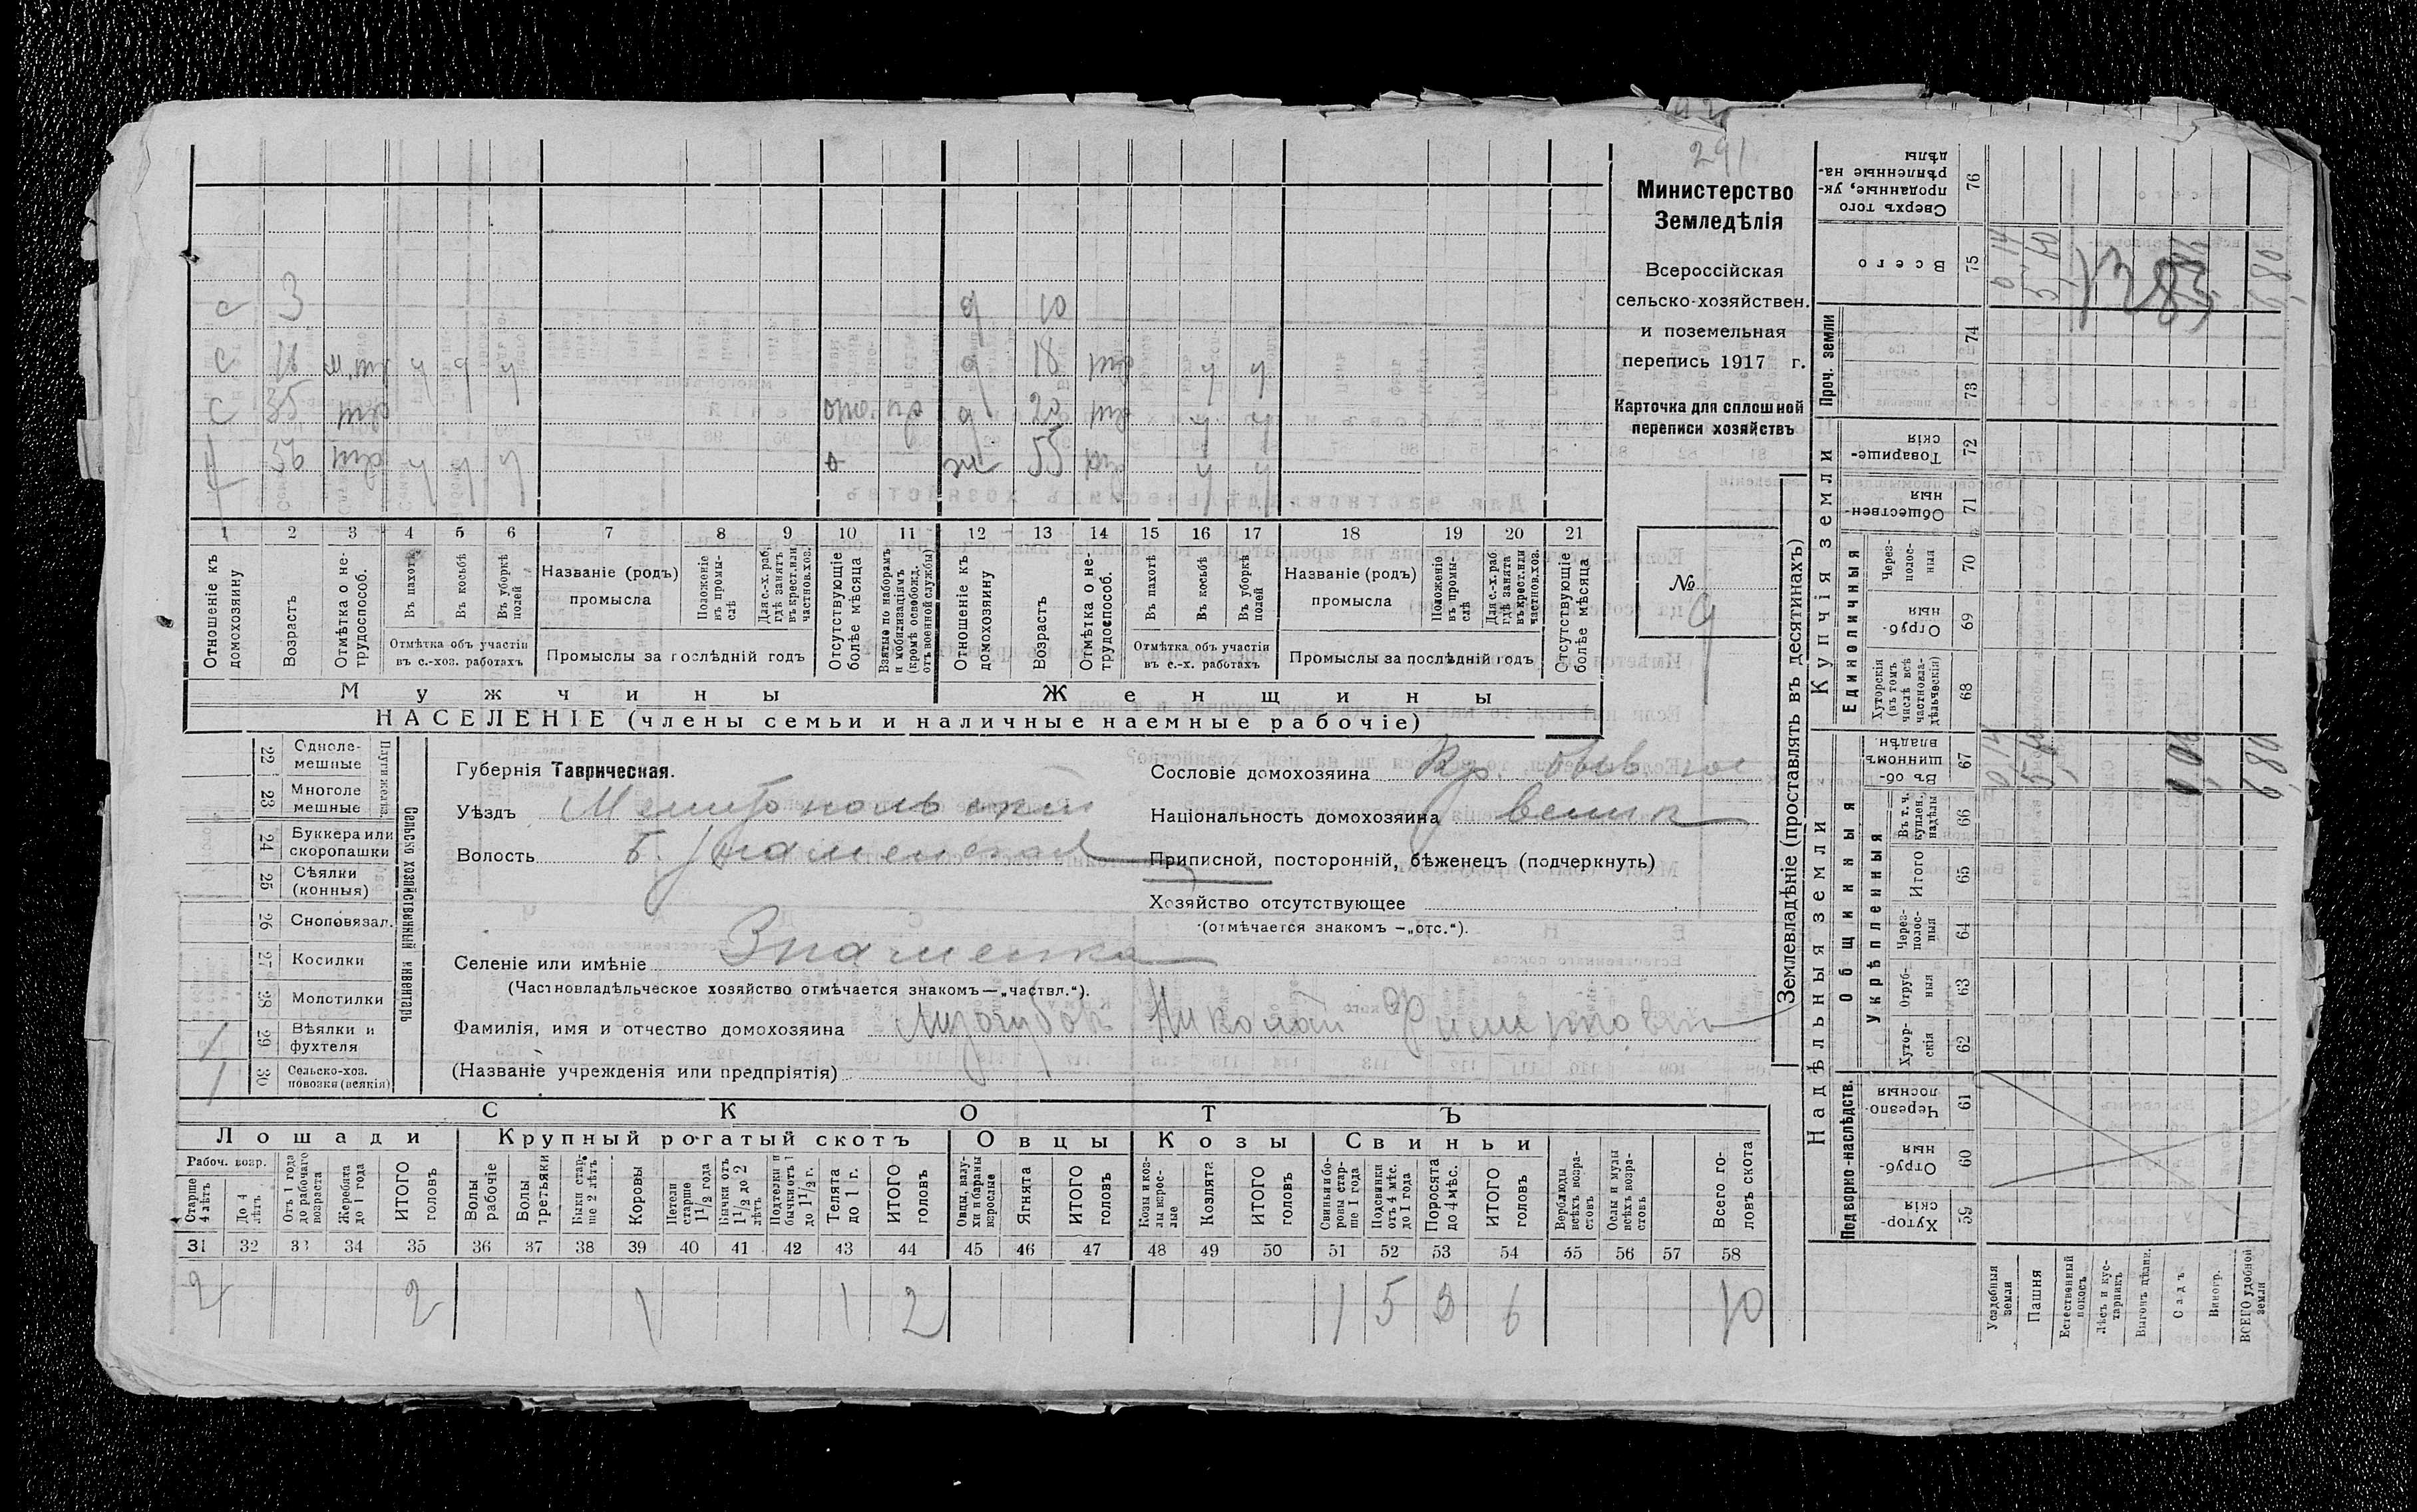 291
Министерство
Земледѣлія
Всероссійская
сельско-хозяйствен.
и поземельная
перепись 1917 г.
Карточка для сплошной
переписи хозяйствъ
№
9
с 3 д 10
с м.тр у у у д 18 тр у у
с 35 тр отс. д 20 тр у у
56 тр у у у ж 55 тр у у
1 2 3 4 5 6 7 8 9 10 11 12 13 14 15 16 17 18 19 20 21
Отношеніе къ домохозяину
Возрастъ
Отмѣтка о нетрудоспособ.
Въ пахотѣ
Въ косьбѣ
Въ уборкѣ полей
Отмѣтка объ участіи
въ с.-хоз. работахъ
Названіе (родъ)
промысла
Положеніе въ промыслѣ
Для с.-х. раб. гдѣ занятъ въ крест. или частнов. хоз.
Промыслы за послѣдній годъ
Отсутствующіе болѣе мѣсяца
Взятые по наборамъ и мобилизаціямъ (кромѣ освобожд. отъ военной службы)
Отношеніе къ домохозяину
Возрастъ
Отмѣтка о нетрудоспособ.
Въ пахотѣ
Въ косьбѣ
Въ уборкѣ полей
Отмѣтка объ участіи
въ с.-х. работахъ
Названіе (родъ)
промысла
Положеніе въ промыслѣ
Для с.-х. раб. гдѣ занята въ крест. или частнов. хоз.
Промыслы за послѣдній годъ
Отсутствующіе болѣе мѣсяца
Мужчины Женщины
НАСЕЛЕНІЕ (члены семьи и наличные наемные рабочіе)
Сельско хозяйственный инвентарь
22 Одноле-
мешные
23 Многоле
мешные
24 Буккера или
скоропашки
25 Сѣялки
(конныя)
26 Сноповязал.
27 Косилки
28 Молотилки
1 29 Вѣялки и
фухтеля
1 30 Сельско-хоз.
повозки (всякія)
Губернія Таврическая.
Уѣздъ Мелитопольский
Волость Б. Знаменская
Селеніе или имѣніе Знаменка
(Частновладѣльческое хозяйство отмѣчается знакомъ—„частвл.“).
Фамилія, имя и отчество домохозяина Лизогубов Николай
(Названіе учрежденія или предпріятія)
Сословіе домохозяина Кр.
Національность домохозяина велик
Приписной, посторонній, бѣженецъ (подчеркнуть)
Хозяйство отсутствующее
(отмѣчается знакомъ —„отс.“).
СКОТЪ
Лошади Крупный рогатый скотъ Овцы Козы Свиньи
Рабоч. возр.
Старше 4 лѣтъ
До 4 лѣтъ
Отъ 1 года до рабочаго возраста
Жеребята до 1 года
ИТОГО головъ
Волы рабочіе
Волы третьяки
Быки старше 2 лѣтъ
Коровы
Нетели старше 1 1/2 года
Бычки отъ 1 1/2 до 2 лѣтъ
Подтелки и бычки отъ 1 до 1 1/2 г.
Телята до 1 г.
ИТОГО головъ
Овцы, валухи и бараны взрослые
Ягнята
ИТОГО головъ
Козы и козлы взрослые
Козлята
ИТОГО головъ
Свиньи и боровы старше 1 года
Подсвинки отъ 4 мѣс. до 1 года
Поросята до 4 мѣс.
ИТОГО головъ
Верблюды всѣхъ возрастовъ
Ослы и мулы всѣхъ возрастовъ
Всего головъ скота
31 32 33 34 35 36 37 38 39 40 41 42 43 44 45 46 47 48 49 50 51 52 53 54 55 56 57 58
2 2 1 1 2 1 5 6 10
Землевладѣніе (проставлять въ десятинахъ)
Надѣльныя земли
Купчія земли
Проч. земли
Подворно-наслѣдств.
Общинныя
Укрѣпленныя
Единоличныя
Сверхъ того проданные, укрѣпленные надѣлы 76
Всего 75
74
73
Товарищескія 72
Общественныя 71
Черезполосныя 70
Отрубныя 69
Хуторскія (въ томъ числѣ всѣ частновладѣльческія) 68
Въ общинномъ владѣн. 67
Въ т. ч. куплен. надѣлы 66
Итого 65
Черезполосныя 64
Отрубныя 63
Хуторскія 62
Черезполосныя 61
Отрубныя 60
Хуторскія 59
Усадебныя земли
Пашня
Естественный покосъ
Лѣсъ и кустарникъ
Выгонъ цѣлин.
Садъ
Виногр.
ВСЕГО удобной земли